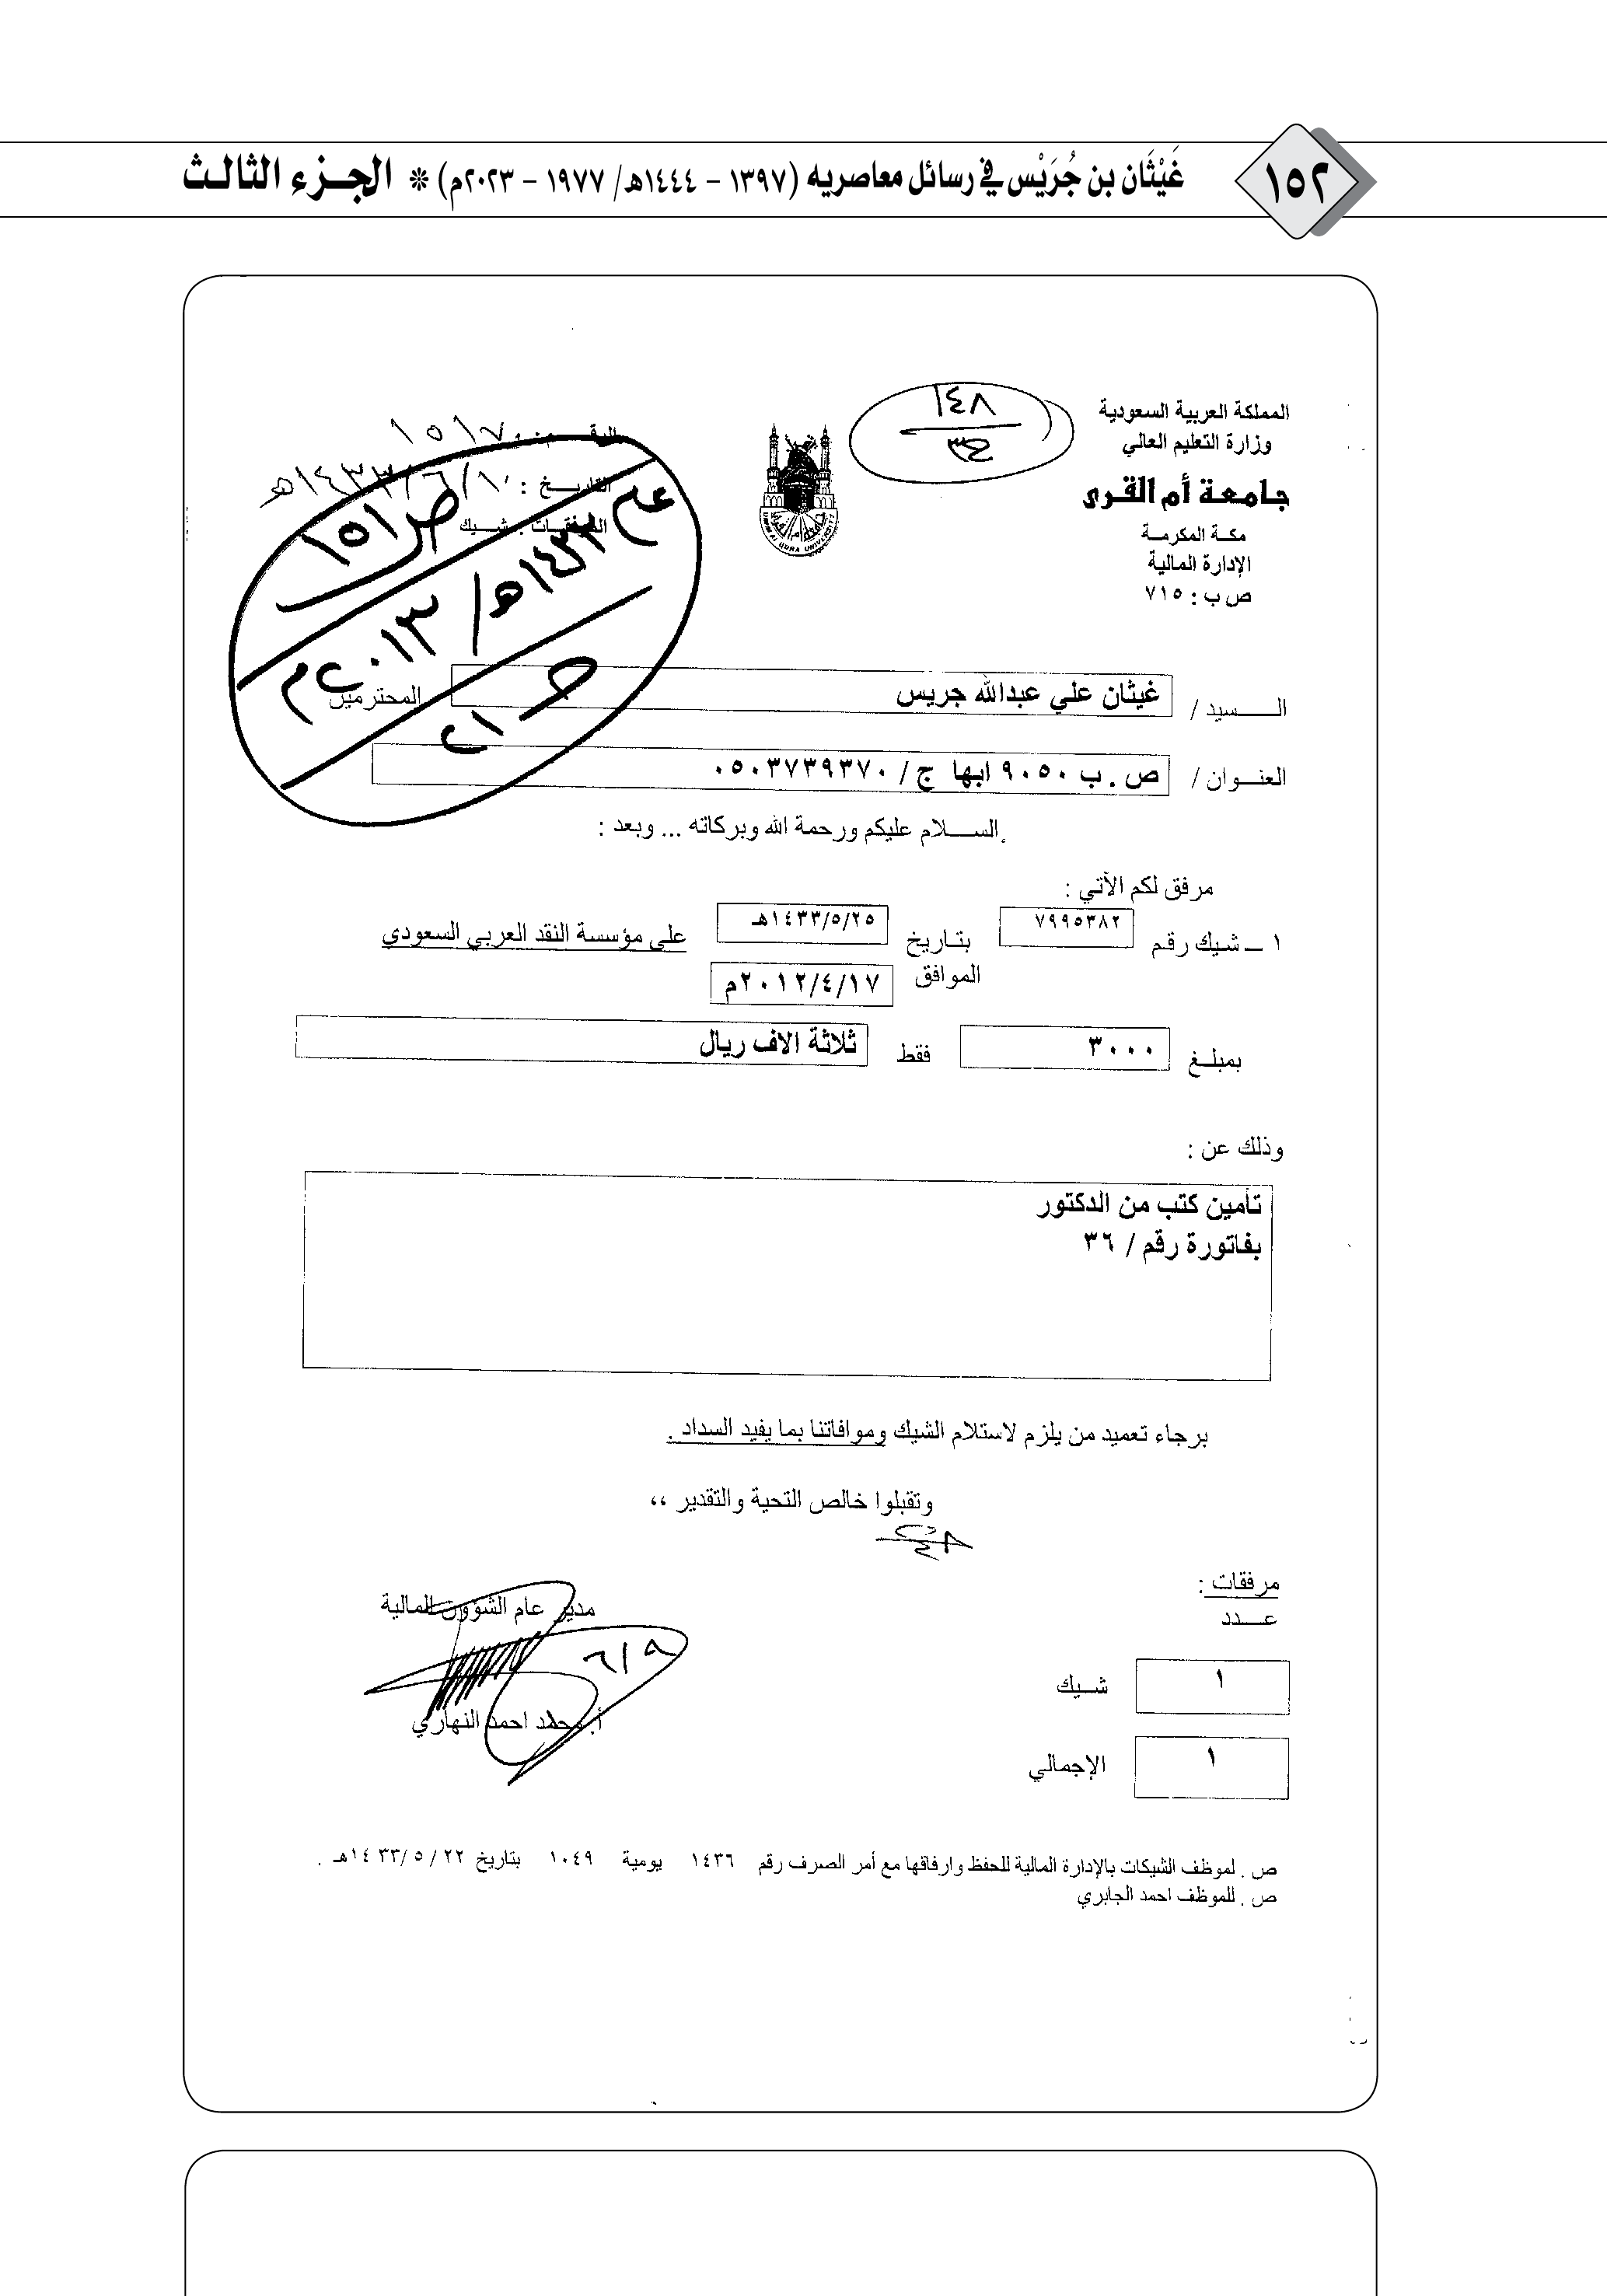 ١٥٢
غَيْثَان بن جُرَيْس في رسائل معاصريه (١٣٩٧ - ١٤٤٤هـ/ ١٩٧٧ - ٢٠٢٣م) * الجزء الثالث
المملكة العربية السعودية
وزارة التعليم العالي
جامعة أم القرى
مكة المكرمة
الإدارة المالية
ص ب : ٧١٥
١٤٨
UMM AL QURA UNIVERSITY
١٥١٧
التاريخ : ١٤٣٣/٦/١٠هـ
المرفقات : شيك
ص ١٥١
٢٠١٣م
السيد / غيثان علي عبدالله جريس المحترمين
العنوان / ص . ب ٩٠٥٠ ابها ج / ٠٥٠٣٧٣٩٣٧٠
السلام عليكم ورحمة الله وبركاته ... وبعد :
مرفق لكم الآتي :
١ – شيك رقم ٧٩٩٥٣٨٢ بتاريخ ١٤٣٣/٥/٢٥هـ على مؤسسة النقد العربي السعودي
الموافق ٢٠١٢/٤/١٧م
بمبلغ ٣٠٠٠ فقط ثلاثة الاف ريال
وذلك عن :
تأمين كتب من الدكتور
بفاتورة رقم / ٣٦
برجاء تعميد من يلزم لاستلام الشيك وموافاتنا بما يفيد السداد .
وتقبلوا خالص التحية والتقدير ،،
مرفقات :
عدد
١ شيك
١ الإجمالي
مدير عام الشؤون المالية
٦/٩
أ. محمد احمد النهاري
ص . لموظف الشيكات بالإدارة المالية للحفظ وارفاقها مع أمر الصرف رقم ١٤٣٦ يومية ١٠٤٩ بتاريخ ٢٢ / ٥ /١٤٣٣هـ .
ص . للموظف احمد الجابري